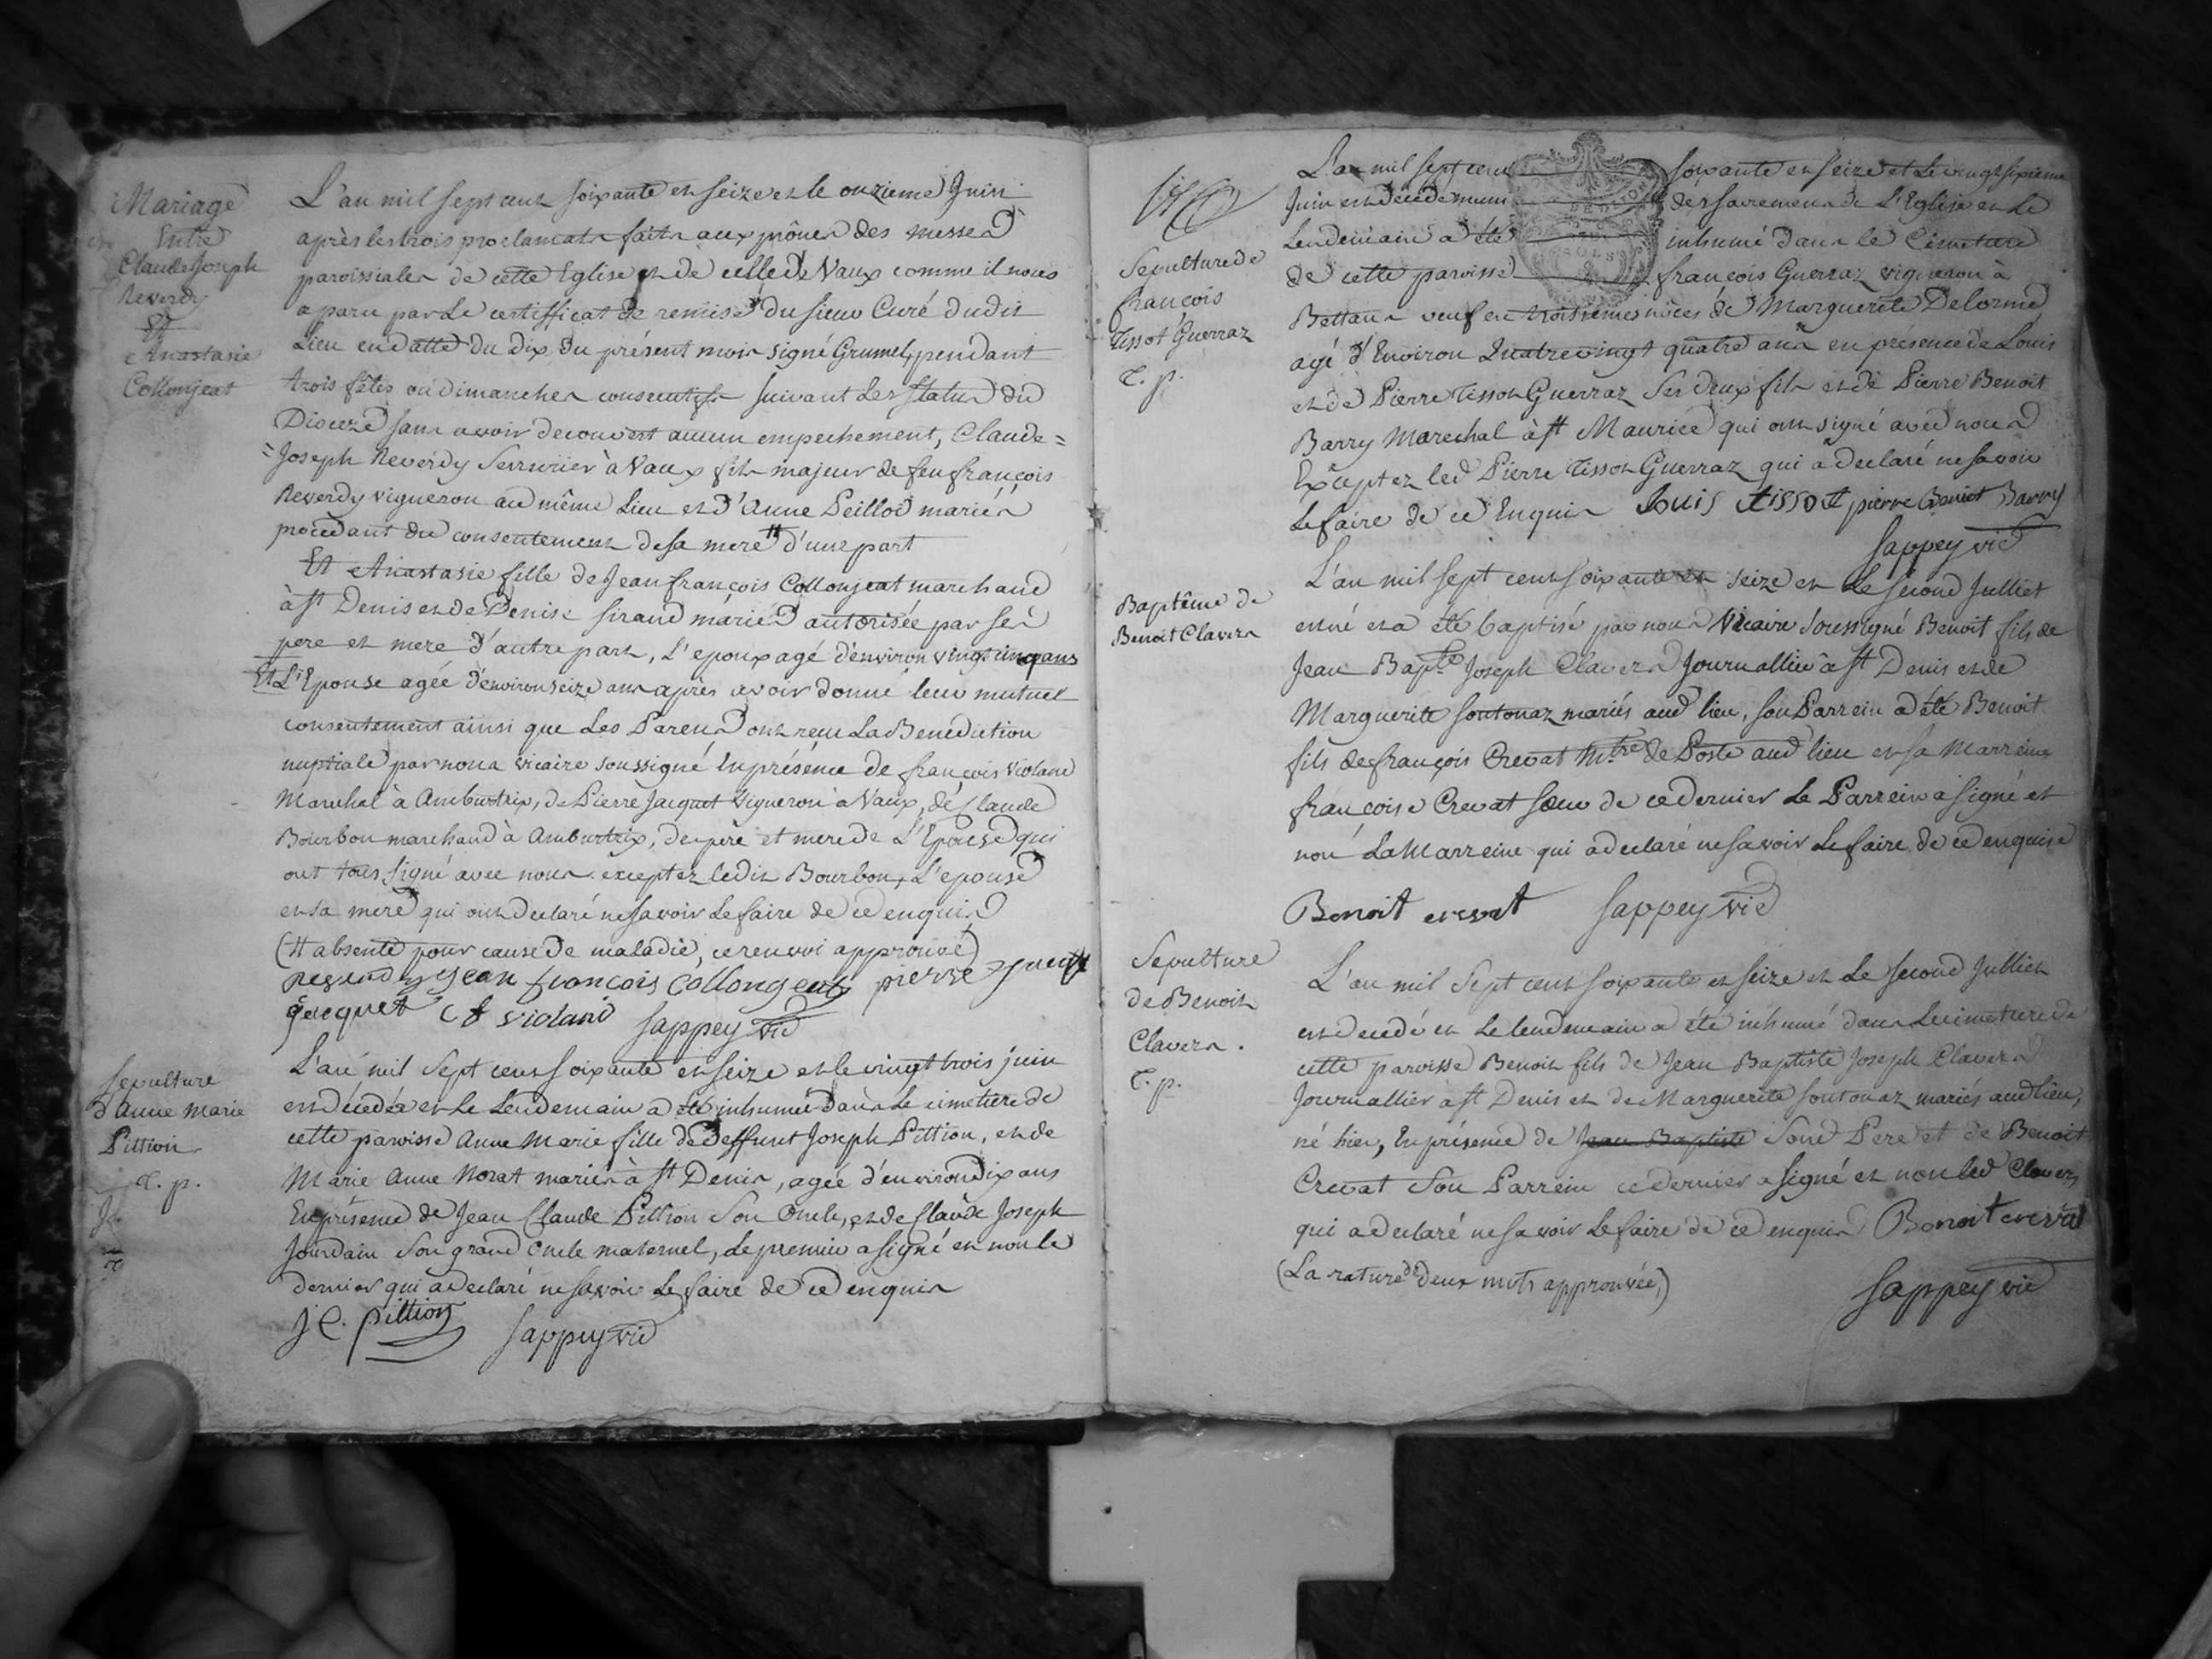 Mariage
Entre
Claude Joseph
Reverdy
Et
Anastasie
Collonjeat
L'an mil sept cent soixante et seize et le onzieme Juin
après les trois proclamats faits aux prônes des messes
paroissiales de cette Eglise et de celle de Vaux comme il nous
a paru par le certifficat de remise du sieur Curé dudit
Lieu en datte du dix du présent mois signé Grumel, pendant
trois fêtes ou dimanches consecutifs suivant les statuts du
Dioceze sans avoir decouvert aucun empechement, Claude=
=Joseph Reverdy Serrurier à Vaux fils majeur de feu françois
Reverdy vigneron au même Lieu et d'Anne Peillod mariés
procedant du consentement de sa mere # d'une part
Et Anastasie fille de Jean françois Collonjeat marchand
à st Denis et de Denise Sirand mariés autorisée par ses
pere et mere d'autre part, L'epoux agé d'environ vingt cinq ans
Et L'Epouse agée d'environ seize ans après avoir donné leur mutuel
consentement ainsi que Les Parens ont reçu La Benediction
nuptiale par nous vicaire soussigné En présence de françois Violand
Marechal à Ambutrix, de Pierre Jacquet Vigneron à Vaux, de Claude
Bourbon marchand à Ambutrix, des père et mere de L'Epouse qui
ont tous signé avec nous exceptez ledit Bourbon, L'epouse
et sa mere qui ont declaré ne savoir Le faire de ce enquis
(# absente pour cause de maladie, ce renvoi approuvé)
Reverdy Jean francois Collongeat pierre
Jacquet Violand Sappey vic
Sepulture
d'Anne Marie
Pittion
C. p.
L'an mil Sept cent soixante et seize et le vingt trois juin
est décédée et Le Lendemain a été inhumée dans Le cimetiere de
cette paroisse Anne Marie fille de deffunt Joseph Pittion, et de
Marie Anne Morat mariés à st Denis, agée d'environ dix ans
En présence de Jean Claude Pittion Son Oncle, et de Claude Joseph
Jourdain Son grand Oncle maternel, Le premier a signé et non le
dernier qui a declaré ne savoir Le faire de ce enquis
J C. pittion Sappey vic
Sepulture de
françois
Tissot Guerraz
C. p.
L'an mil sept cent soixante et seize et Le vingt sixieme
Juin est décédé muni des sacremens de L'Eglise et Le
Lendemain a été inhumé dans le Cimetiere
de cette paroisse françois Guerraz vigneron à
Bettans veuf en troisiemes nôces de Marguerite Delorme
agé d'Environ Quatre vingt quatre ans en présence de Louis
et de Pierre Tissot Guerraz Ses deux fils et de Pierre Benoit
Barry Marechal à st Maurice qui ont signé avec nous
Exceptez led Pierre Tissot Guerraz qui a declaré ne savoir
Le faire de ce Enquis Louis tissot pierre Benoit Barry
Sappey vic
Baptême de
Benoit Claver
L'an mil sept cent soixante et seize et Le second Juillet
est né et a été baptisé par nous Vicaire Soussigné Benoit fils de
Jean Bapte Joseph Claver Journallier à st Denis et de
Marguerite Soutonaz mariés aud lieu, son Parrein a été Benoit
fils de françois Crevat Mtre de Poste aud lieu et sa Marreine
françoise Crevat sœur de ce dernier Le Parrein a signé et
non La Marreine qui a declaré ne savoir Le faire de ce enquise
Benoit crevat Sappey vic
Sepulture
de Benoit
Claver.
C. p.
L'an mil Sept cent soixante et seize et Le second Juillet
est decedé et Le lendemain a été inhumé dans Le cimetiere de
cette paroisse Benoit fils de Jean Baptiste Joseph Claver
Journallier à st Denis et de Marguerite Soutonaz mariés aud lieu,
né hier, En présence de Jean Baptiste Sond Pere et de Benoit
Crevat Son Parrein ce dernier a signé et non led Claver
qui a declaré ne savoir Le faire de ce enquis Benoit crevat
(La rature de deux mots approuvée,)
Sappey vic